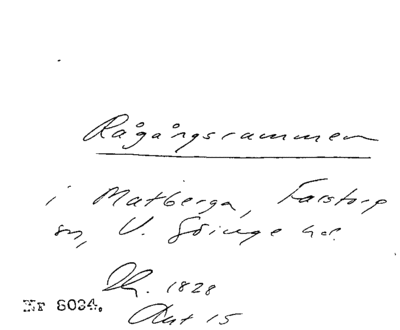 Rågångsrammen
i Matberga, Farstorp
sn, V. Göinge hd.
1828
Nr 8034.
Aut 15